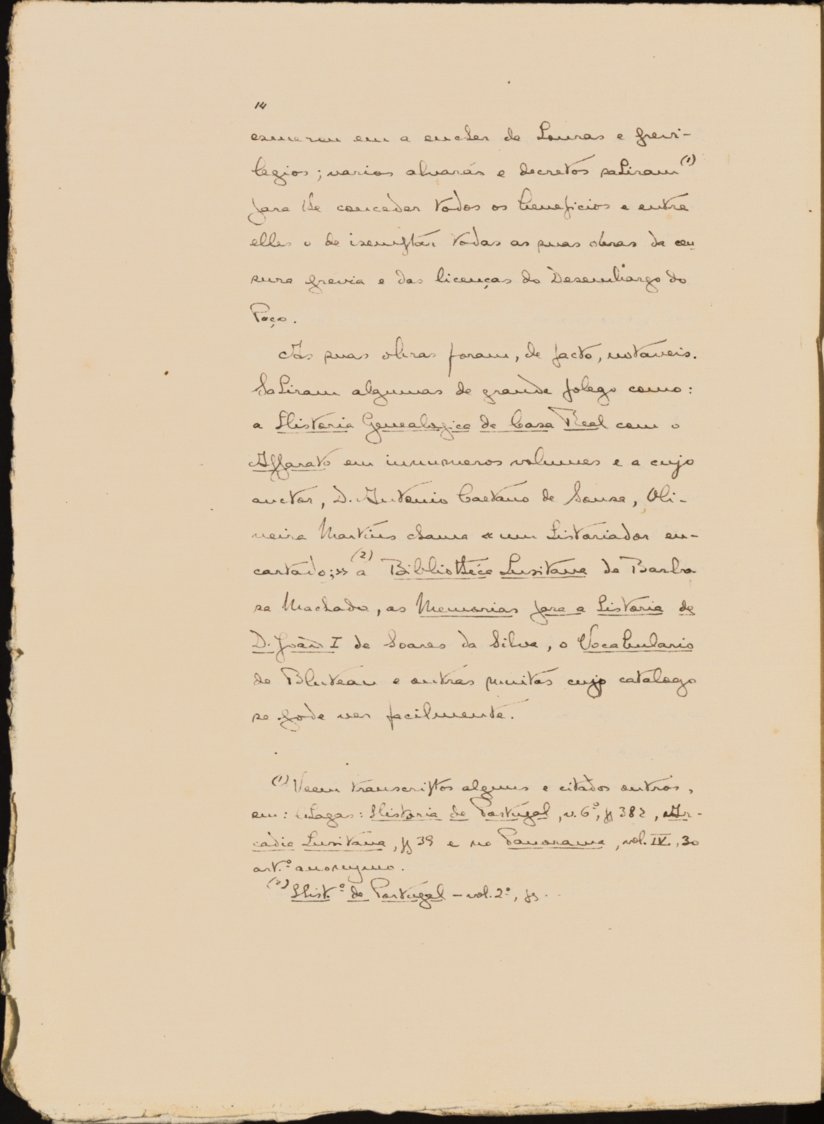 14
esmerou em a encher de honras e previ-
legios; varios alvarás e decretos sahiram (1)
para lhe conceder todos os beneficios e entre
elles o de isemptár todas as suas obras da cen
sura previa e das licenças do Desembargo do
Paço.
As suas obras foram, de facto, notaveis.
Sahiram algumas de grande folego como:
a Historia Genealogica da Casa Real com o
Apparato em innumeros volumes e a cujo
auctor, D. Antonio Caetano de Sousa, Oli-
veira Martins chama «um historiador en-
cartado;» (2) a Bibliothéca Lusitana de Barbo
sa Machado, as Memorias para a historia de
D. João I de Soares da Silva, o Vocabulario
de Bluteau e outras muitas cujo catalogo
se pode ver facilmente.
(1) Veem transcriptos alguns e citados outros,
em: Historia de Portugal, v. 6º, pg 382, Ar-
cadia Lusitana, pg 39 e no Panorama, vol. IV, 30
art.º anonymo.
(2) Hist.ª de Portugal – vol. 2º, pg. ..